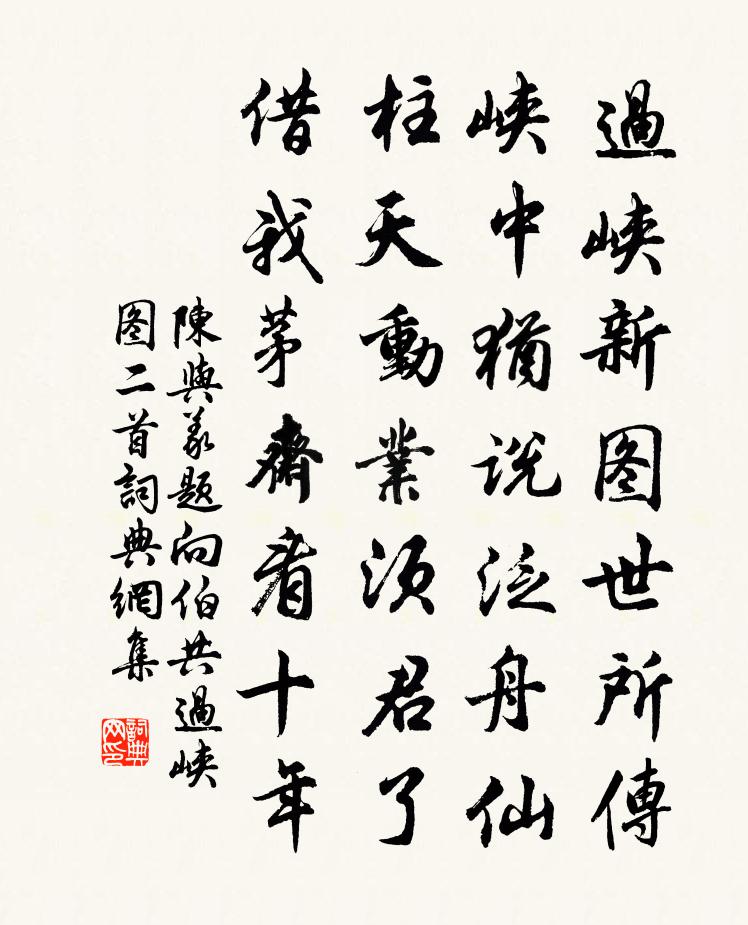 過峽新图世所傳
峽中猶說泛舟仙
柱天動業須君了
借我茅齋看十年
陳與義題向伯共過峽
图二首詞典網集
詞典網印